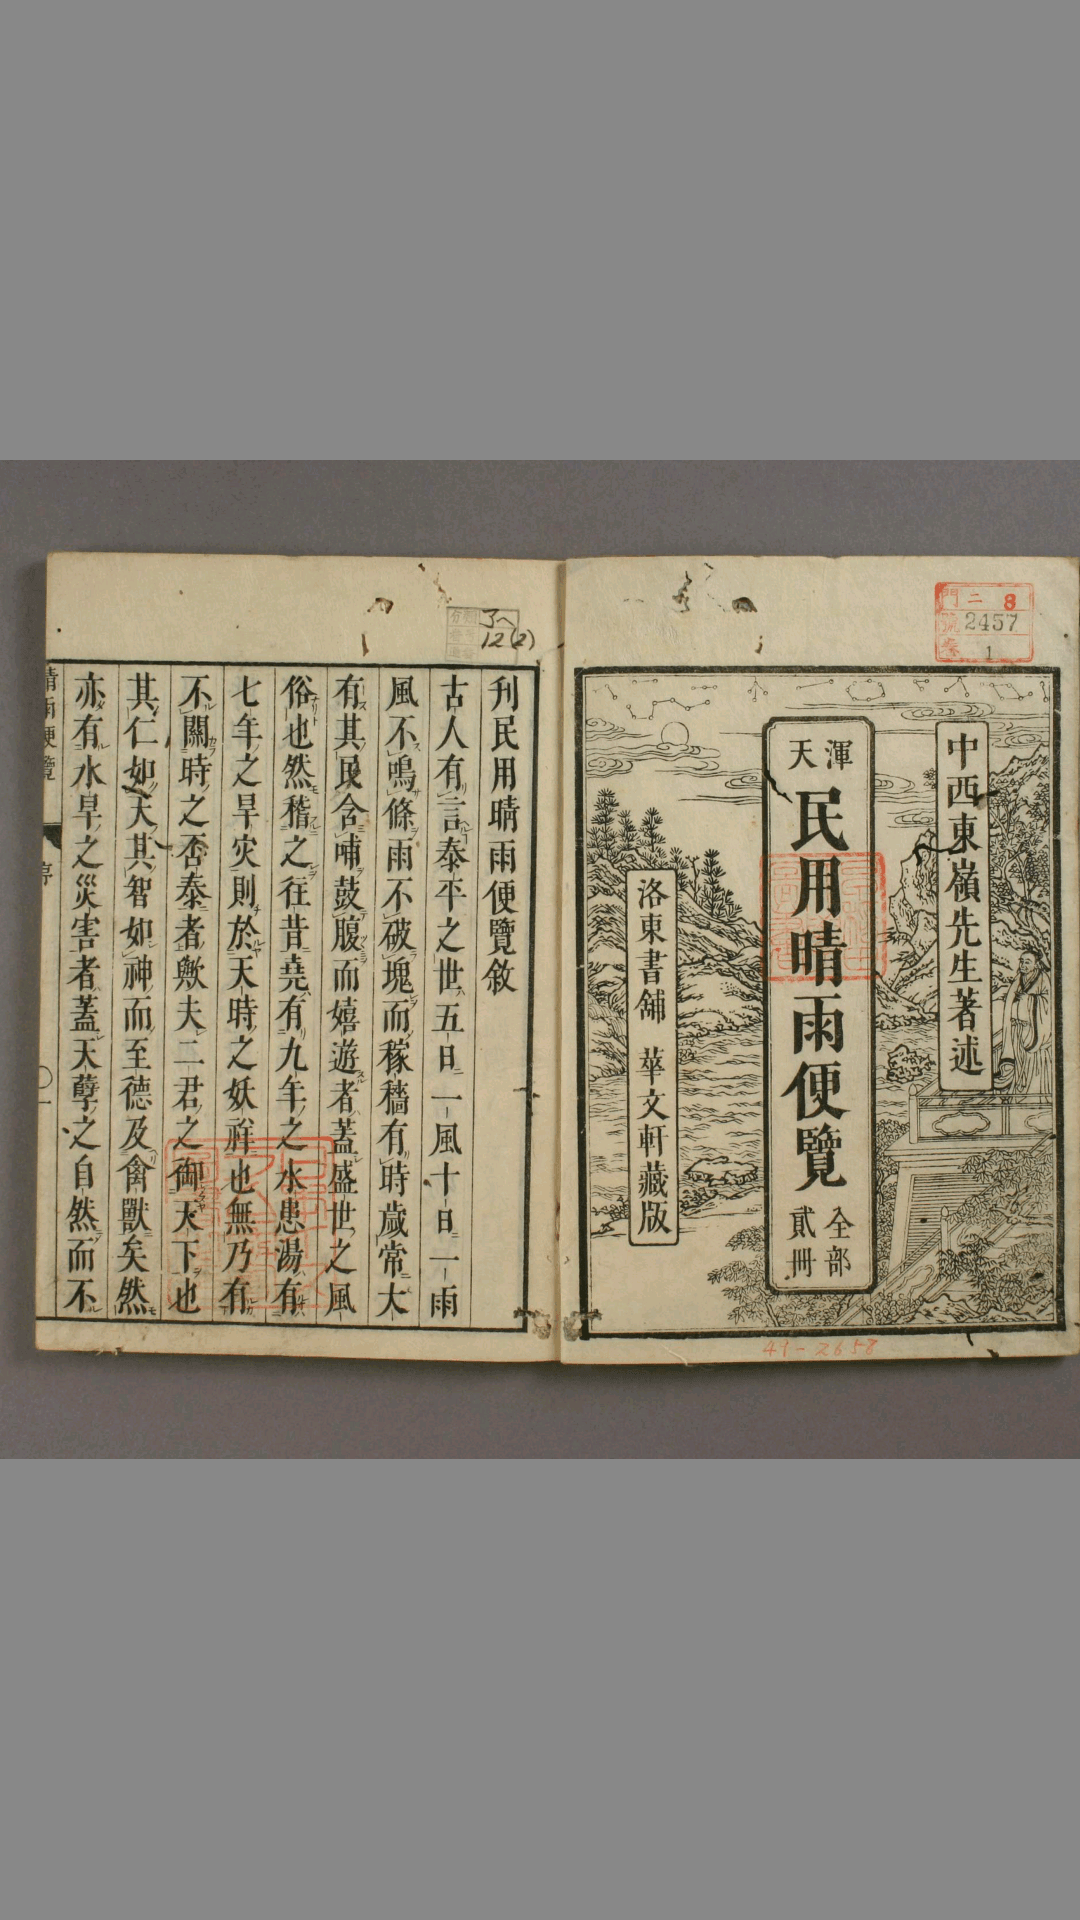 門 二 8
號 2457
卷 1
中西東嶺先生著述
渾天
民用晴雨便覽
全部
貳冊
洛東書舗 華文軒藏版
41-2658
12(2)
刊民用晴雨便覽敘
古人有言泰平之世五日一風十日一雨
風不鳴條雨不破塊而稼穡有時歲常大
有其民含哺鼓腹而嬉遊者蓋盛世之風
俗也然稽之往昔堯有九年之水患湯有
七年之旱灾則於天時之妖祥也無乃有
不關時之否泰者歟夫二君之御天下也
其仁如天其智如神而至德及禽獸矣然
亦有水旱之災害者蓋天孽之自然而不
晴雨便覽
序